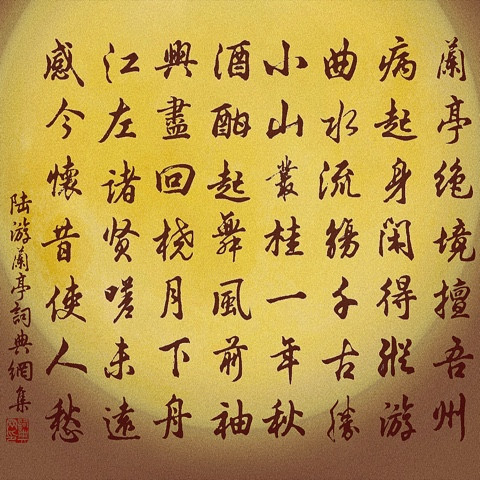 蘭亭絶境擅吾州
病起身閑得縱游
曲水流觴千古勝
小山叢桂一年秋
酒酣起舞風前袖
興盡回橈月下舟
江左諸賢嗟未遠
感今懷昔使人愁
陸游蘭亭詞典網集